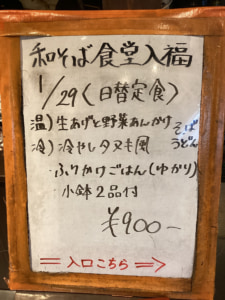 和そば食堂入福
1/29(日替定食)
温)生あげと野菜あんかけ そば
冷)冷やしタヌキ風 うどん
ふりかけごはん(ゆかり)
小鉢2品付
¥900-
= 入口こちら ⇒